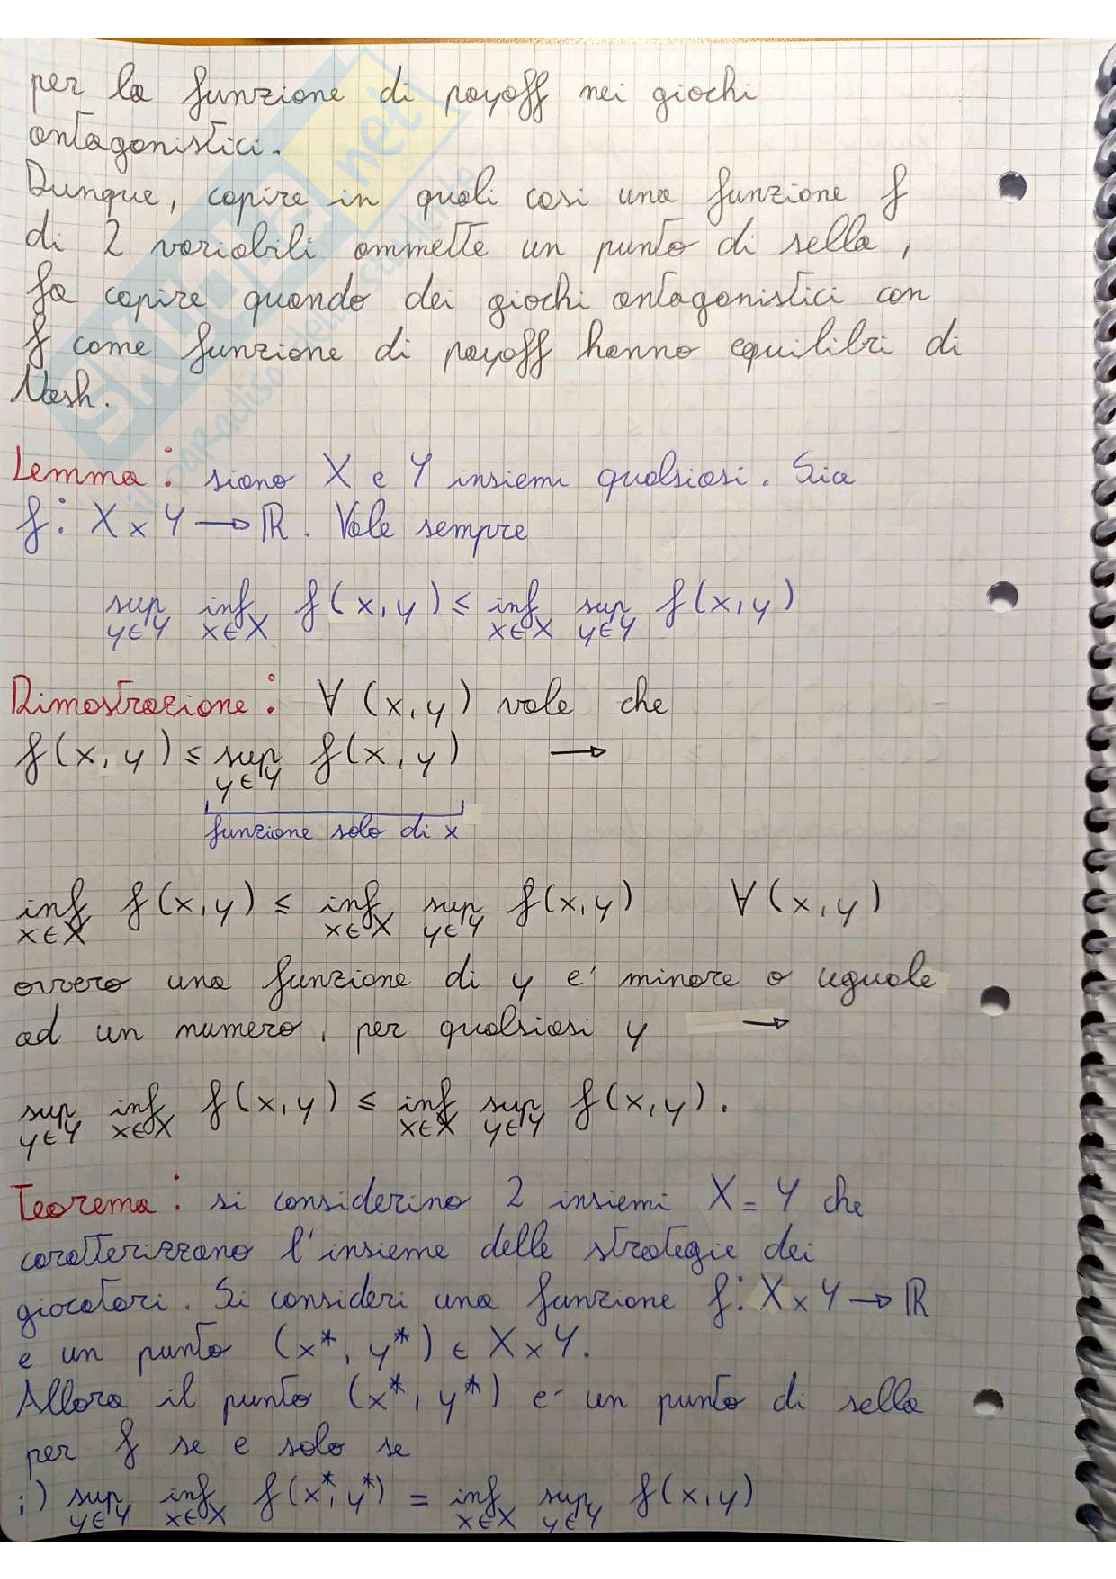 per la funzione di payoff nei giochi
antagonistici.
Dunque, capire in quali casi una funzione f
di 2 variabili ammette un punto di sella,
fa capire quando dei giochi antagonistici con
f come funzione di payoff hanno equilibri di
Nash.
Lemma: siano X e Y insiemi qualsiasi. Sia
f: X × Y → ℝ. Vale sempre
sup inf f(x,y) ≤ inf sup f(x,y)
y∈Y x∈X x∈X y∈Y
Dimostrazione: ∀ (x,y) vale che
f(x,y) ≤ sup f(x,y) →
y∈Y
funzione solo di x
inf f(x,y) ≤ inf sup f(x,y) ∀(x,y)
x∈X x∈X y∈Y
ovvero una funzione di y e' minore o uguale
ad un numero, per qualsiasi y →
sup inf f(x,y) ≤ inf sup f(x,y).
y∈Y x∈X x∈X y∈Y
Teorema: si considerino 2 insiemi X = Y che
caratterizzano l'insieme delle strategie dei
giocatori. Si consideri una funzione f: X × Y → ℝ
e un punto (x*, y*) ∈ X × Y.
Allora il punto (x*, y*) e' un punto di sella
per f se e solo se
i) sup inf f(x*,y*) = inf sup f(x,y)
y∈Y x∈X x∈X y∈Y